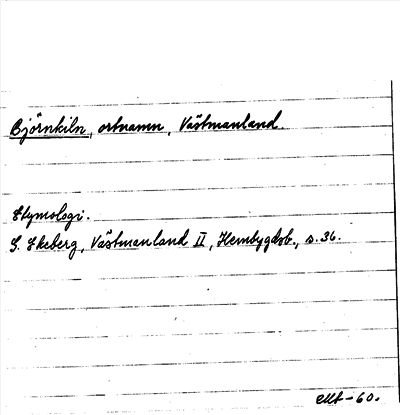 Björnkiln, ortnamn, Västmanland.
Etymologi.
G. Ekeberg, Västmanland II, Hembygdsb., s. 36.
-60.